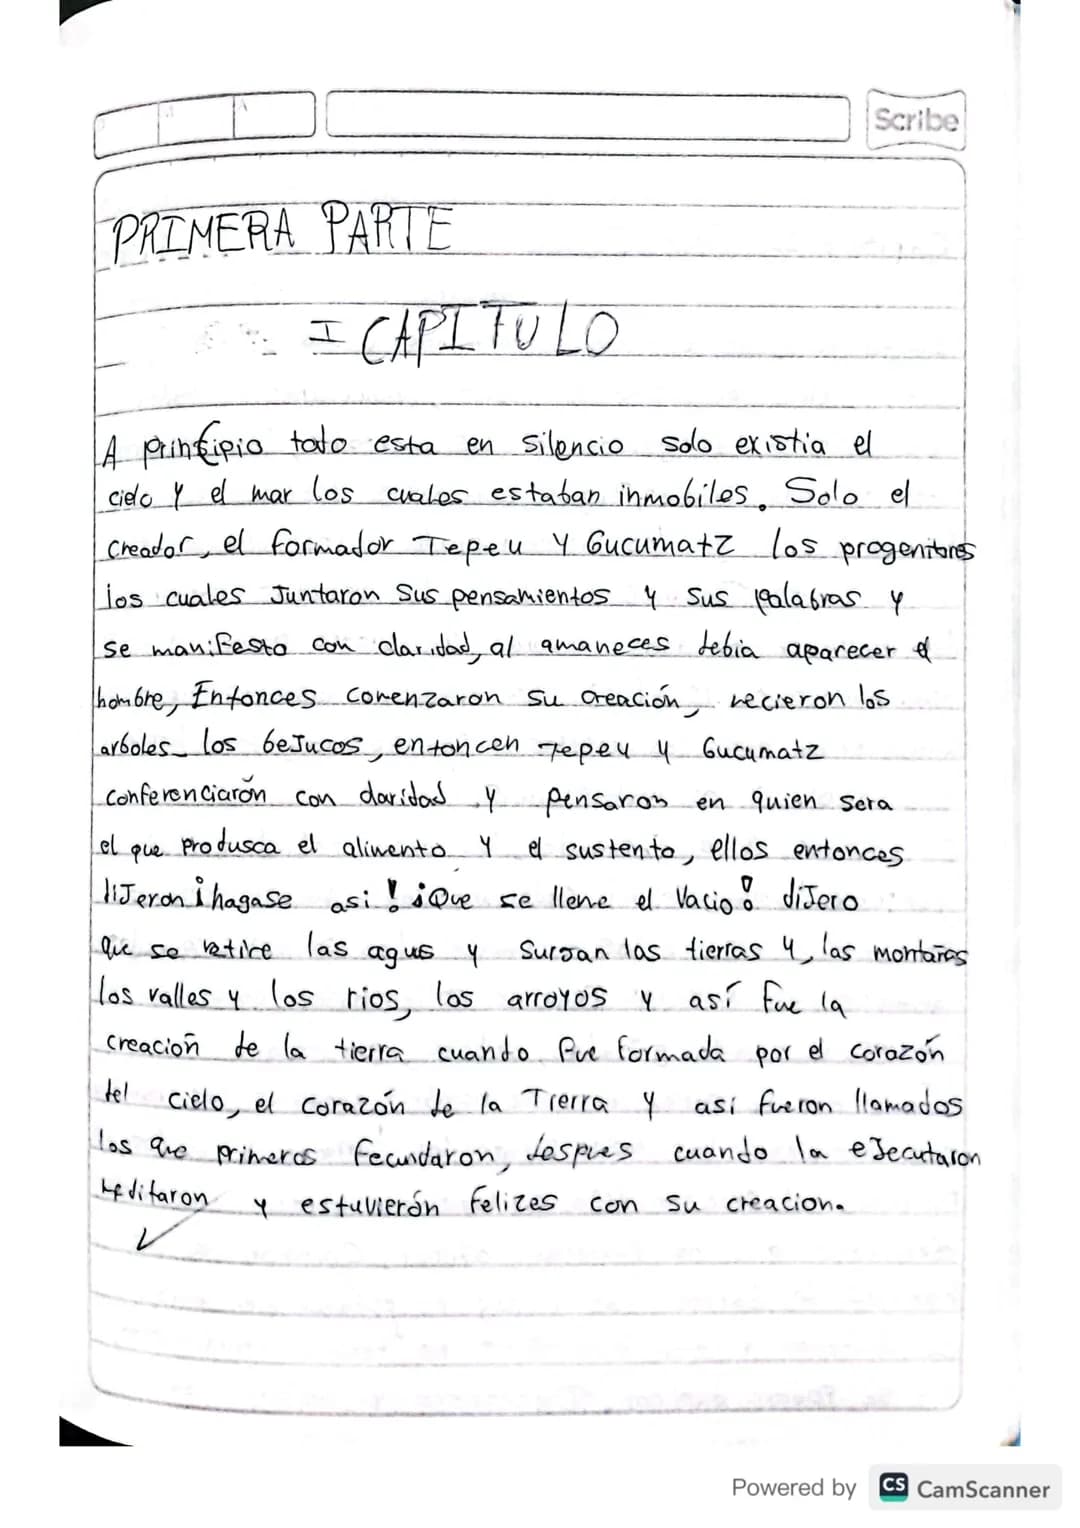 Scribe
PRIMERA PARTE
I CAPITULO
A principio todo esta en silencio solo existia el
cielo y el mar los cuales estaban inmobiles. Solo el
creador, el formador Tepeu y Gucumatz los progenitores
los cuales Juntaron Sus pensamientos y sus palabras y
se manifesto con claridad, al amaneces debia aparecer el
hombre, Entonces comenzaron su creación, necieron los
arboles los beJucos, entoncen Tepeu y Gucumatz
conferenciarón con claridad y pensaron en quien sera
el que produsca el alimento y el sustento, ellos entonces
diJeron ¡hagase asi! ¡Que se llene el Vacio! diJero
que se retire las agus y SurJan las tierras y, las montañas
los valles y los rios, los arroyos y así fue la
creación de la tierra cuando fue formada por el corazón
del cielo, el corazón de la Tierra y así fueron llamados
los que primeros fecundaron, despues cuando la eJecutaron
y estuvierón felizes con su creacion.
Powered by CS CamScanner